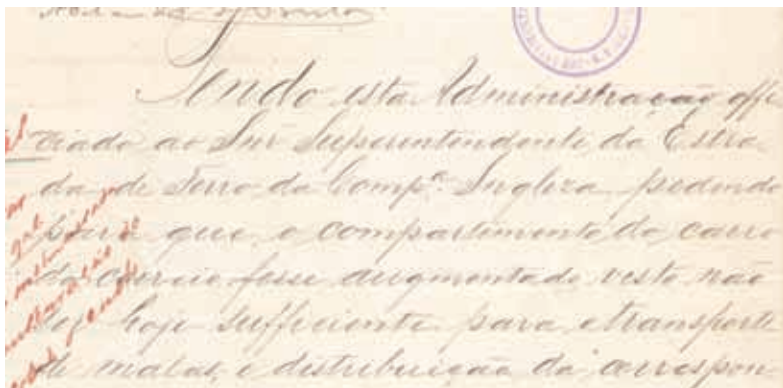 Tendo esta Administração offi
ciado ao Snr Superintendente da Estra
da de Ferro da Comp.ª Ingleza pedindo
para que o compartimento do carro
do correio fosse augmentado visto não
ser hoje sufficiente para o transporte
de malas, e distribuição da correspon